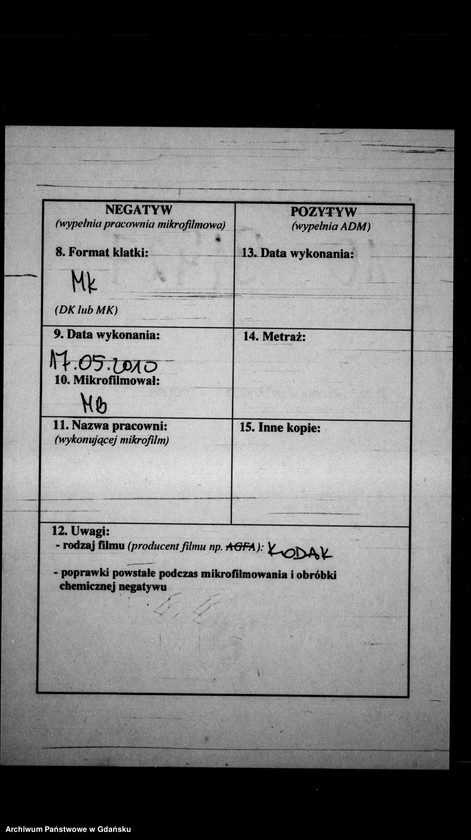 NEGATYW
(wypełnia pracownia mikrofilmowa)
8. Format klatki:
Mk
(DK lub MK)
9. Data wykonania:
17.05.2010
10. Mikrofilmował:
MB
11. Nazwa pracowni:
(wykonującej mikrofilm)
POZYTYW
(wypełnia ADM)
13. Data wykonania:
14. Metraż:
15. Inne kopie:
12. Uwagi:
- rodzaj filmu (producent filmu np. AGFA): KODAK
- poprawki powstałe podczas mikrofilmowania i obróbki
chemicznej negatywu
Archiwum Państwowe w Gdańsku